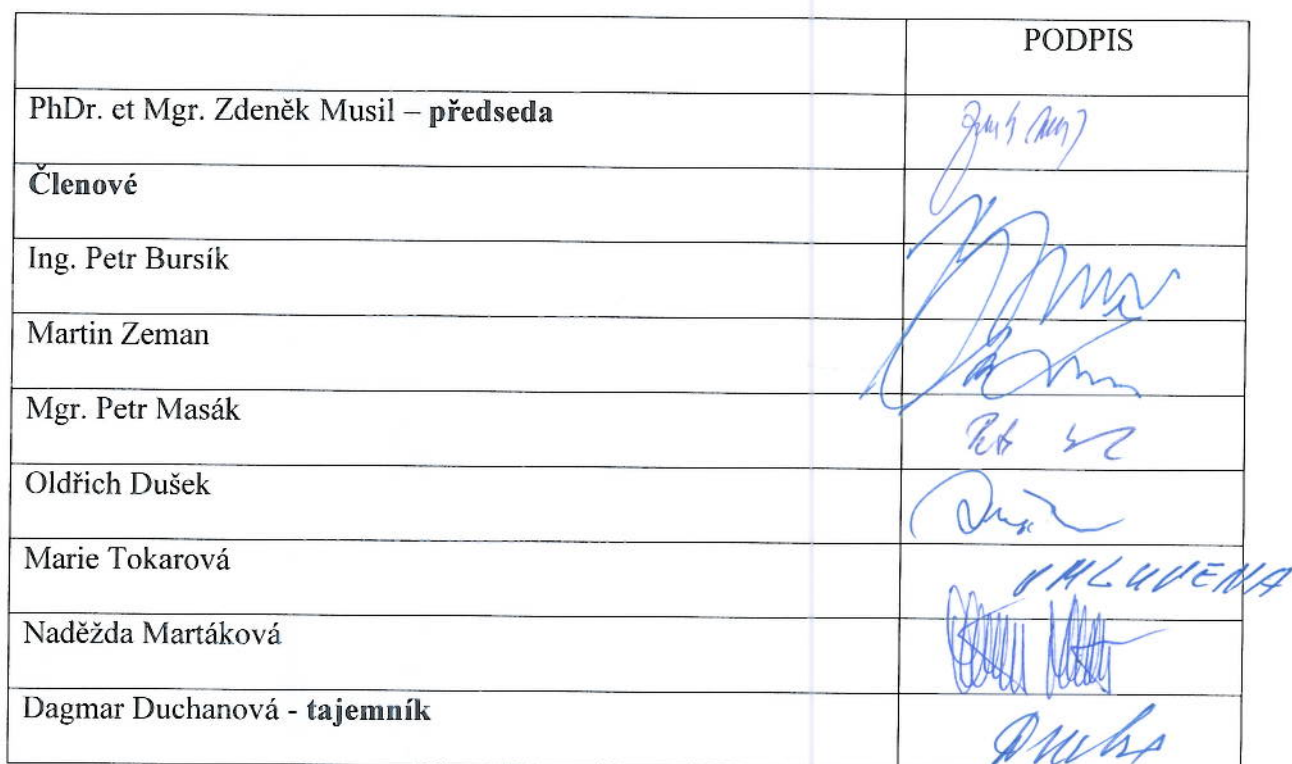 PODPIS
PhDr. et Mgr. Zdeněk Musil – předseda
Členové
Ing. Petr Bursík
Martin Zeman
Mgr. Petr Masák
Oldřich Dušek
Marie Tokarová
OMLUVENA
Naděžda Martáková
Dagmar Duchanová - tajemník